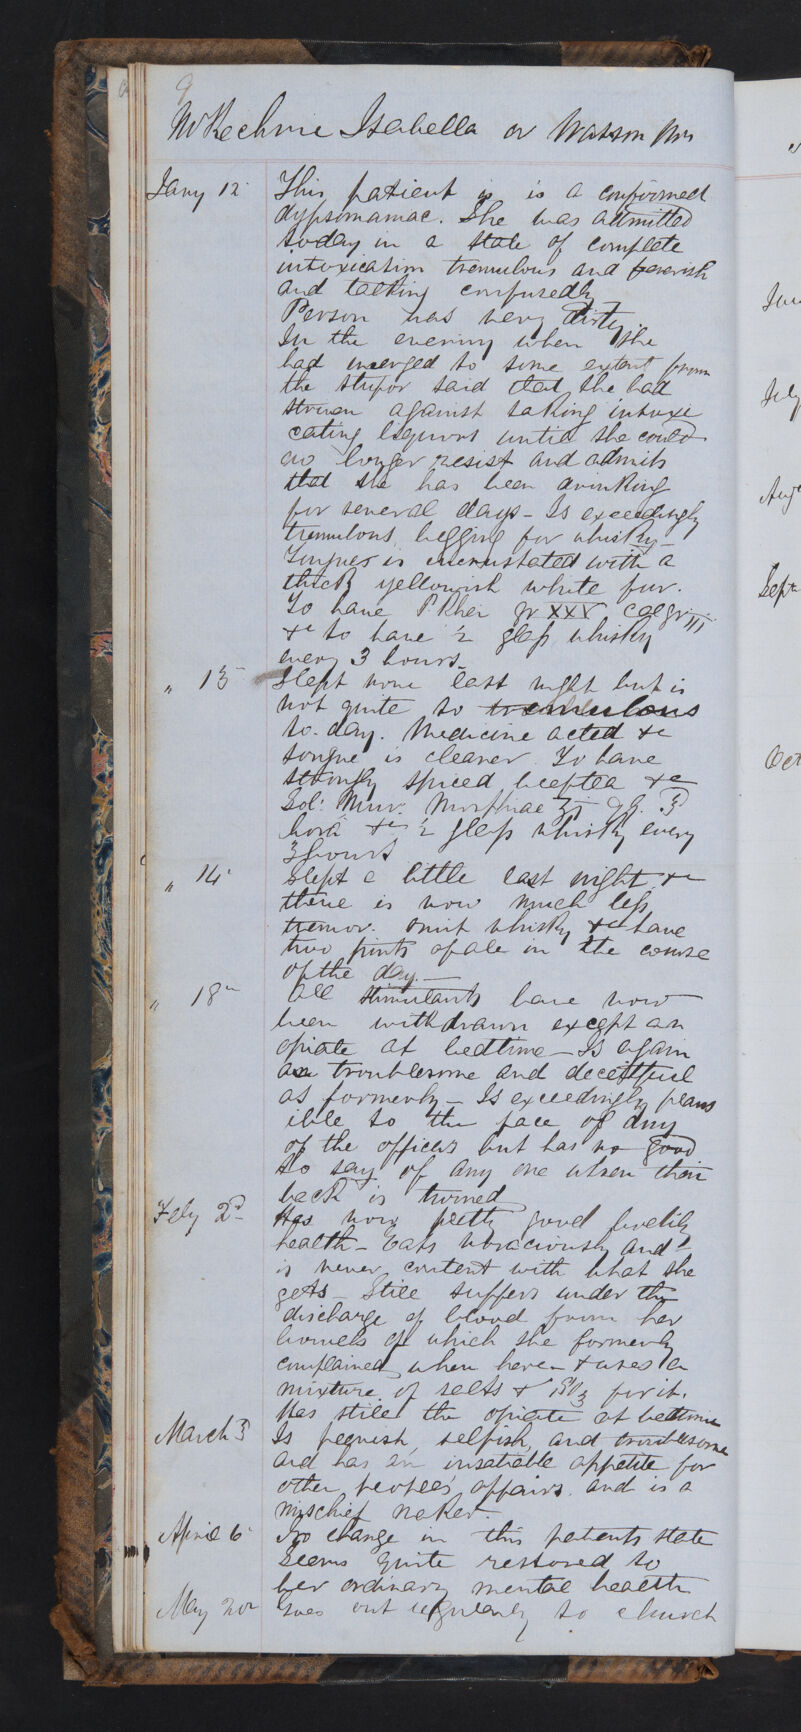 9
McKechnie Isabella or Watson Mrs
Jany 12 This patient is is a confirmed
dypsomaniac. She was admitted
today in a state of complete
intoxication tremulous and feverish
and talking confusedly
Person was very dirty.
In the evening when she
had emerged to some extent from
the stupor said that she had
striven against taking intoxi
cating liquors until she could
no longer resist and admits
that she has been drinking
for several days - Is exceedingly
tremulous, begging for whisky -
Tongue is incrustated with a
thick yellowish white fur.
To have P Rhei gr XXV Cal gr iii
& to have ½ glass whisky
every 3 hours -
" 13 Slept none last night but is
not quite so tremulous
to-day. Medicine acted &
tongue is cleaner. To have
strongly spiced beeftea &
Sol: Mur. Morphiae
hora & ½ glass whisky every
3 hours
" 14 Slept a little last night &
there is now much less
tremor. Omit whisky & have
two pints of ale in the course
of the day -
" 18th All stimulants have now
been withdrawn except an
opiate at bedtime - Is again
as troublesome and deceitful
as formerly - Is exceedingly plaus
ible to the face of any
of the officers but has no good
to say of any one when their
back is turned
Feby 2d Has now pretty good bodily
health - Eats voraciously and
is never content with what she
gets - Still suffers under the
discharge of blood from her
bowels of which she formerly
complained when here & uses a
mixture of salts & for it.
Has still the opiate at bedtime
March 3 Is peevish, selfish, and troublesome
and has an insatiable appetite for
other people's affairs and is a
mischief maker.
April 6 No change in this patients state
Seems quite restored to
her ordinary mental health
May 20th Goes out regularly to church
Jan
July
Aug
Sept
Oct